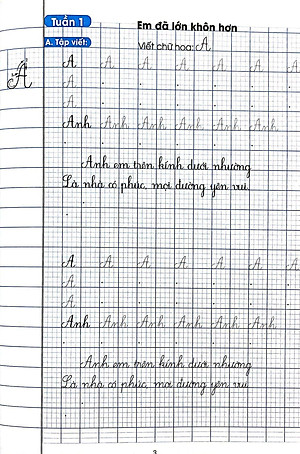 Tuần 1
Em đã lớn khôn hơn
A. Tập viết:
Viết chữ hoa: A
A
A A A A A A A
A
A
Anh Anh Anh Anh Anh Anh
Anh em trên kính dưới nhường
Là nhà có phúc, mọi đường yên vui.
A A A A A A A
A
A
Anh Anh Anh Anh Anh Anh
Anh em trên kính dưới nhường
Là nhà có phúc, mọi đường yên vui.
3